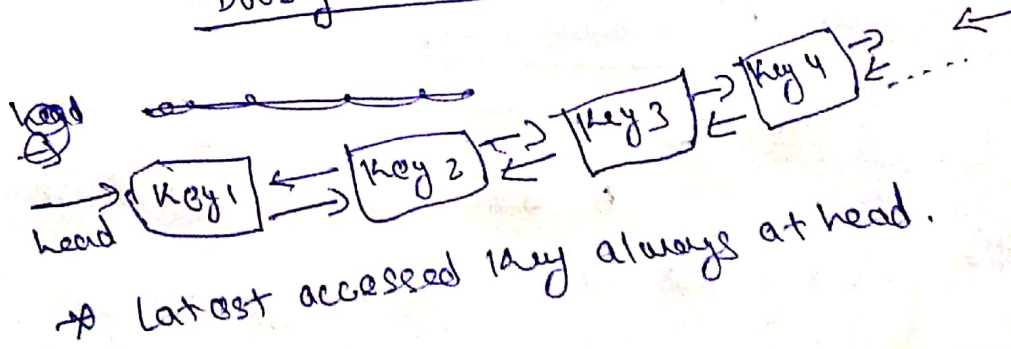 head
Key 1 Key 2 Key 3 Key 4
* Latest accessed Key always at head.